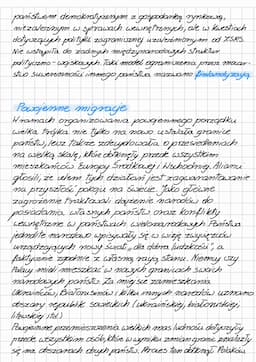 państwem demokratycznym z gospodarką rynkową,
niezależnym w sprawach wewnętrznych, ale w kwestiach
dotyczących polityki zagranicznej uzależnionym od ZSRS.
Nie wstąpiła do żadnych międzynarodowych struktur
polityczno-wojskowych. Taki model ograniczenia przez mocar-
stwo suwerenności innego państwa nazwano finlandyzacją.
Powojenne migracje
W ramach organizowania powojennego porządku
Wielka Trójka nie tylko na nowo ustalała granice
państw, lecz także zdecydowała o przesiedleniach
na wielką skalę, które dotknęły przede wszystkim
mieszkańców Europy Środkowej i Wschodniej. Alianci
głosili, że celem tych działań jest zagwarantowanie
na przyszłość pokoju na świecie. Jako główne
zagrożenie traktowali dążenie narodów do
posiadania własnych państw oraz konflikty
wewnętrzne w państwach wielonarodowych. Państwa
jednolite narodowo wpisywały się w wizję zwycięzców
urządzających nowy świat „dla dobra ludzkości”, a
faktycznie zgodnie z własną racją stanu. Niemcy czy
Polacy mieli mieszkać w nowych granicach swoich
narodowych państw. Za miejsce zamieszkania
Ukraińców, Białorusinów i kilku innych narodów uznano
obszary republik sowieckich (ukraińskiej, białoruskiej,
litewskiej itd.)
Powojenne przemieszczenia wielkich mas ludności dotyczyły
przede wszystkim osób, które w wyniku zmian granic znalazły
się na obszarach obcych państw. Proces ten dotknął Polaków